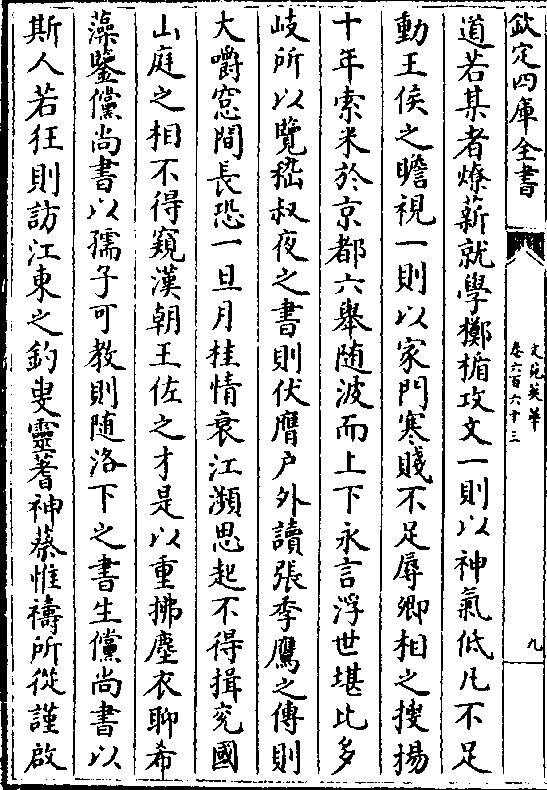 欽定四庫全書
文苑英華
卷六百六十三
九
道若某者燎薪就學擲楯攻文一則以神氣低凡不足
動王侯之瞻視一則以家門寒賤不足辱卿相之搜揚
十年索米於京都六舉随波而上下永言浮世堪比多
岐所以覽嵇叔夜之書則伏膺户外讀張季鷹之傳則
大嚼窓間長恐一旦月桂情衰江蘋思起不得揖兖國
山庭之相不得窺漢朝王佐之才是以重拂塵衣聊希
藻鑒儻尚書以孺子可教則随洛下之書生儻尚書以
斯人若狂則訪江東之釣叟靈蓍神蔡惟禱所從謹啟